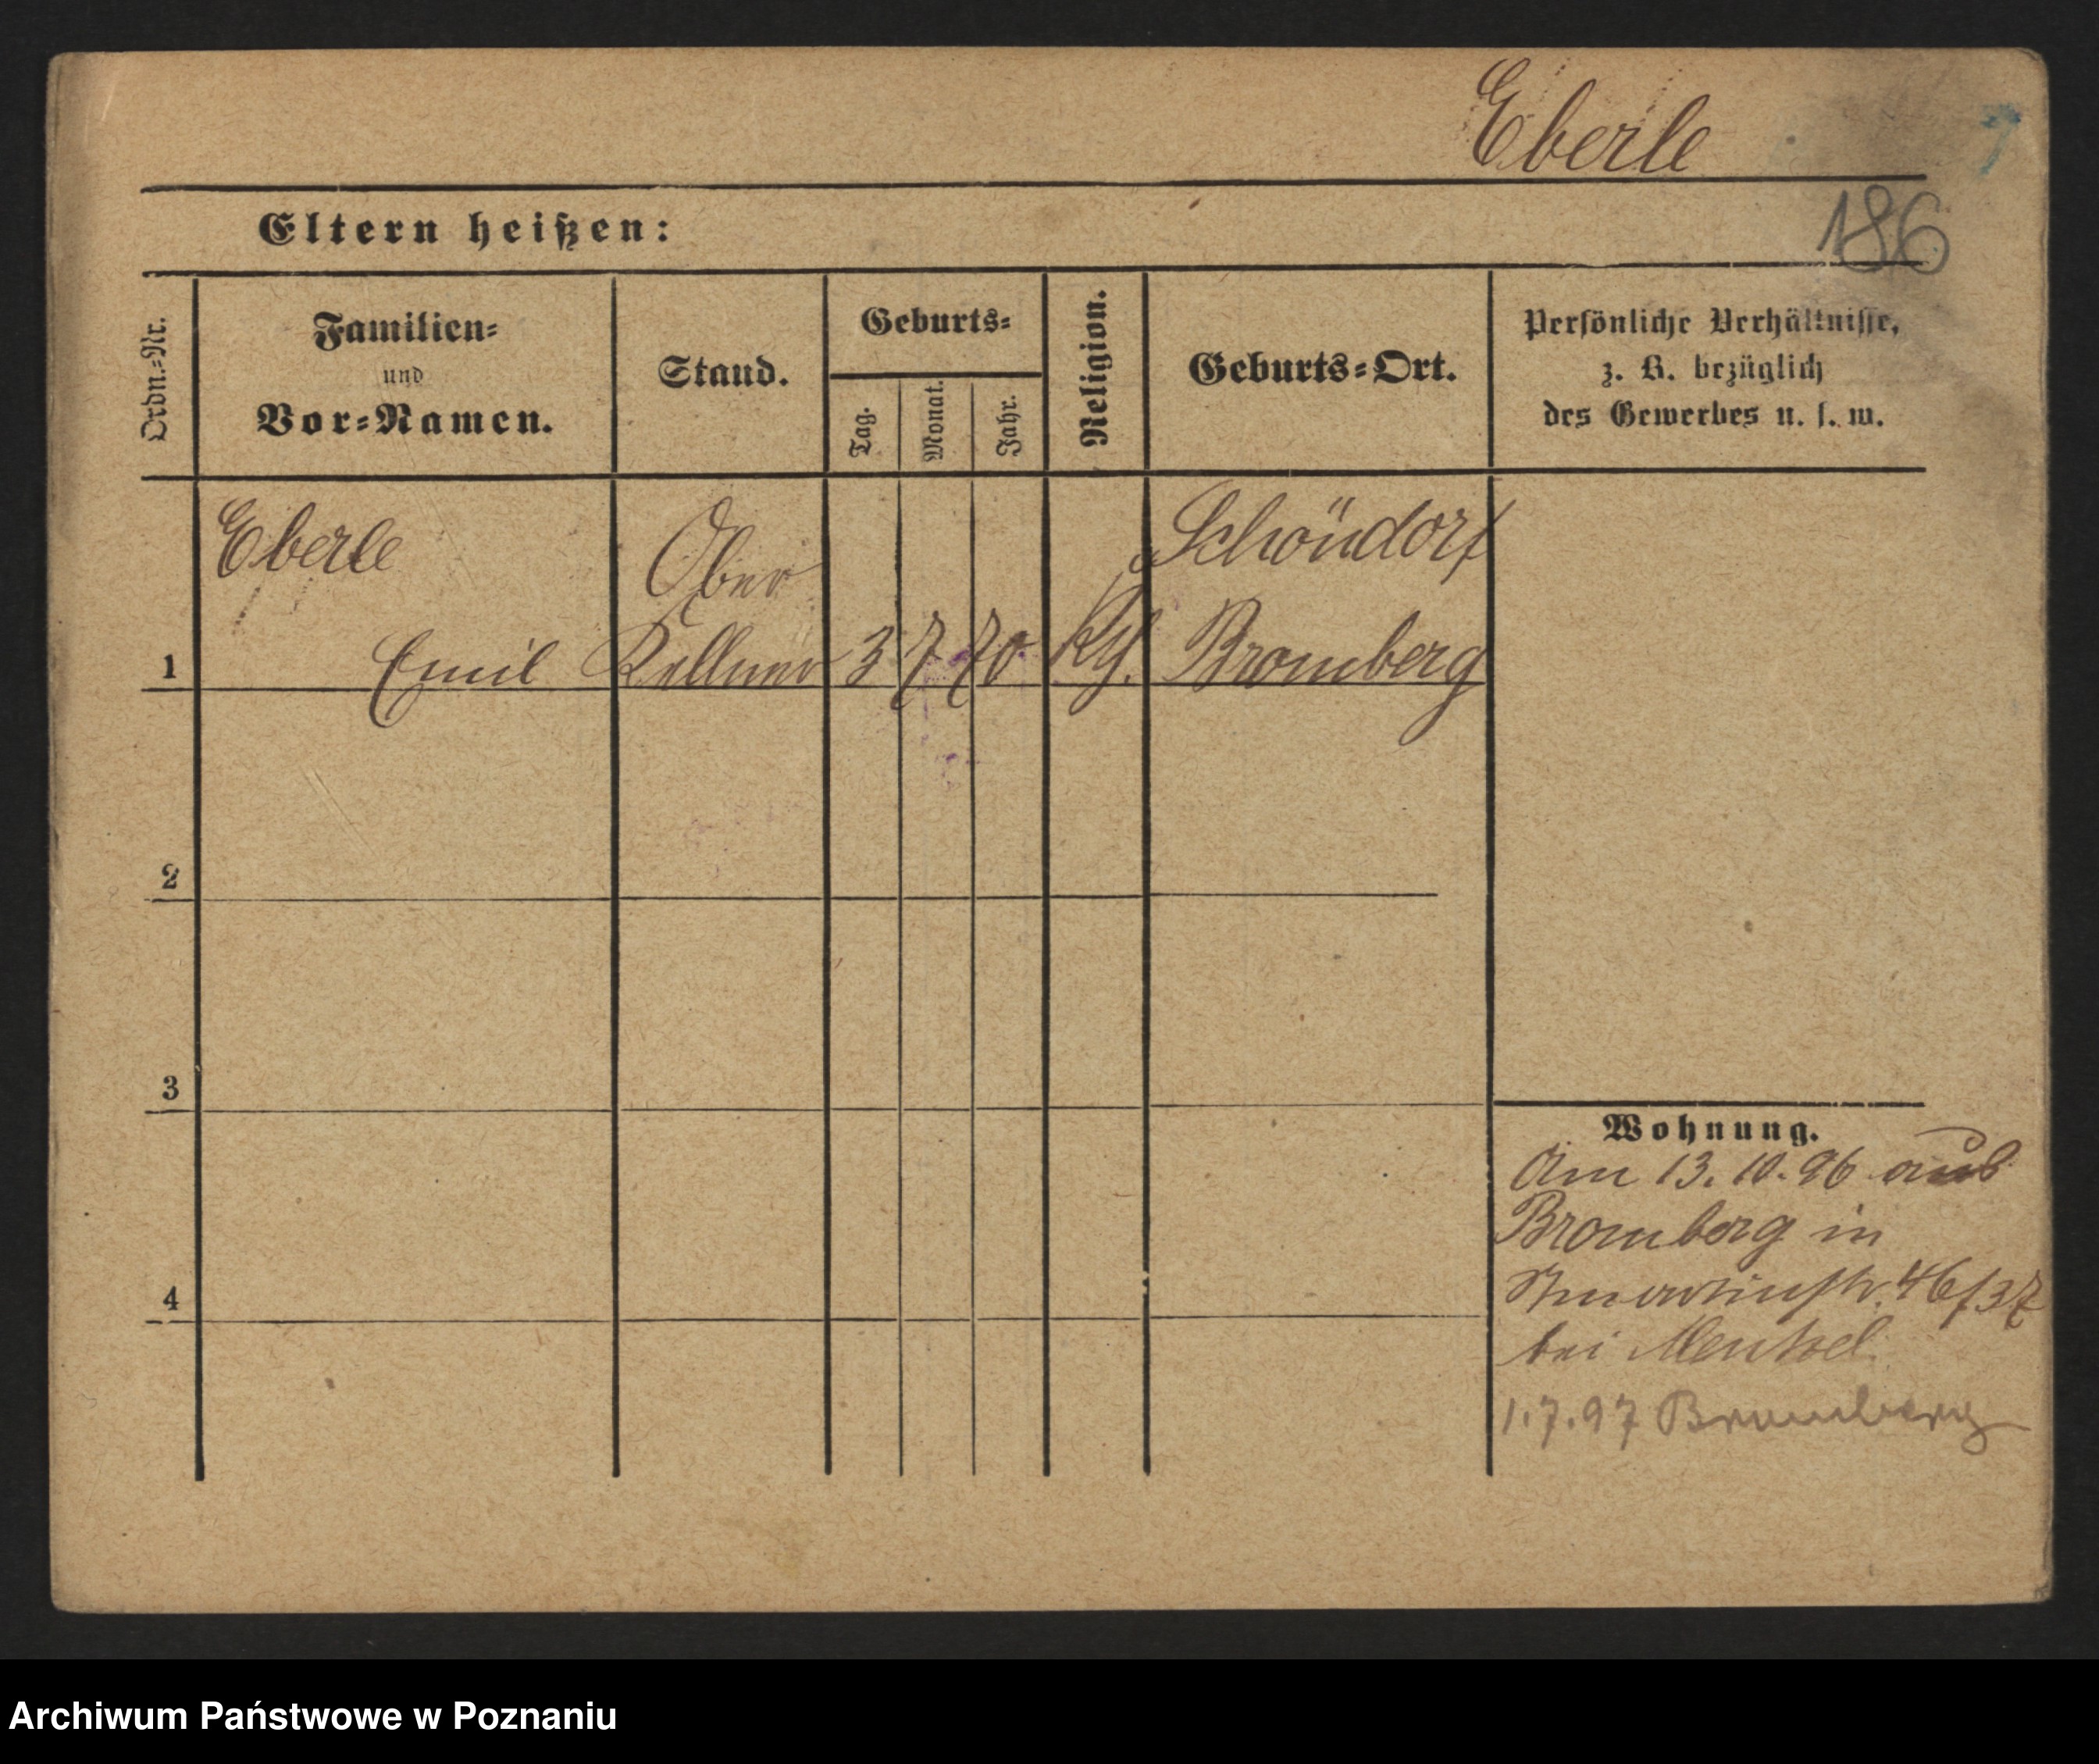 Eberle
7
186
Eltern heißen:
Ordn.=Nr.
Familien=
und
Vor=Namen.
Stand.
Geburts=
Tag.
Monat.
Jahr.
Religion.
Geburts=Ort.
Persönliche Verhältnisse,
z. B. bezüglich
des Gewerbes u. s. w.
Eberle
Ober
Schöndorf
1 Emil Kellner 3 7 70 Bromberg
2
3
4
Wohnung.
Am 13. 10. 96 aus
Bromberg in
46/37
bei
1.7.97 Bromberg
Archiwum Państwowe w Poznaniu